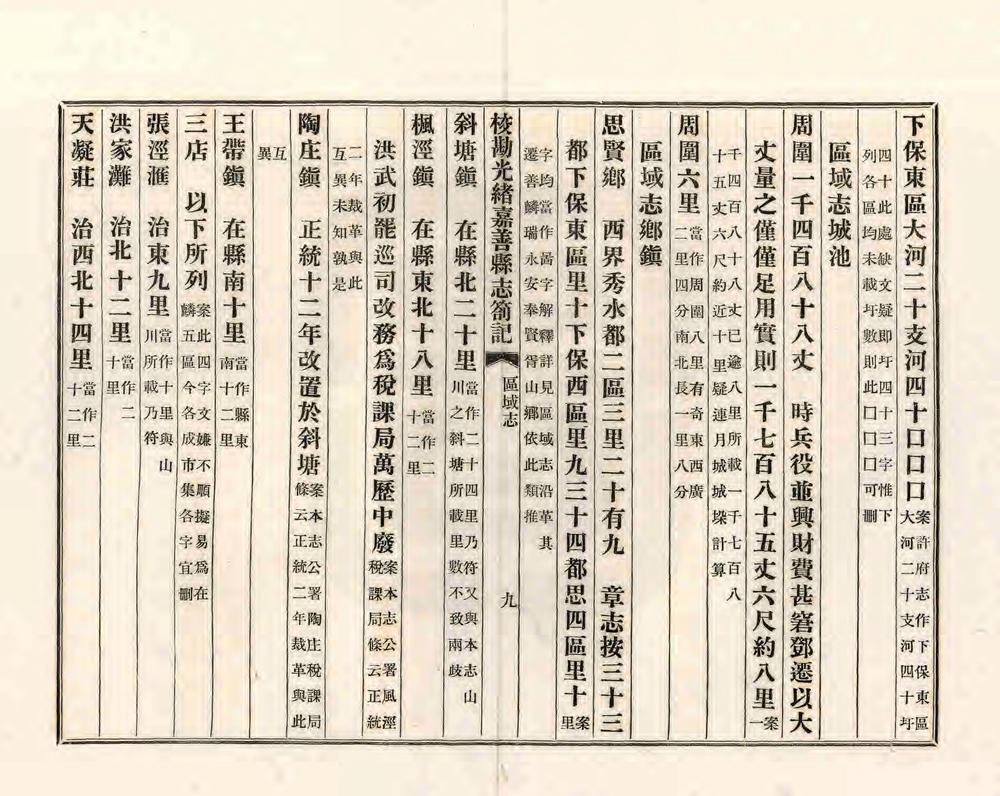 下保東區大河二十支河四十囗囗囗案許府志作下保東區大河二十支河四十圩
四十此處缺文疑即圩四十三字惟下列各區均未載圩數則此囗囗囗可刪
區域志城池
周圍一千四百八十八丈 時兵役並興財費甚窘鄧遷以大
丈量之僅僅足用實則一千七百八十五丈六尺約八里案一
千四百八十八丈已逾八里所載一千七百八十五丈六尺約近十里疑連月城城垜計算
周圍六里當作周圍八里有奇東西廣二里四分南北長一里八分
區域志鄉鎮
思賢鄉 西界秀水都二區三里二十有九 章志按三十三
都下保東區里十下保西區里九三十四都思四區里十案里
字均當作啚字解釋詳見區域志沿革其遷善麟瑞永安奉賢胥山鄉依此類推
校勘光緒嘉善縣志劄記 區域志 九
斜塘鎮 在縣北二十里當作二十四里乃符又與本志山川之斜塘所載里數不致兩歧
楓涇鎮 在縣東北十八里當作二十二里
洪武初罷巡司改務爲稅課局萬歷中廢案本志公署風涇稅課局條云正統
二年裁革與此互異未知孰是
陶庄鎮 正統十二年改置於斜塘案本志公署陶庄稅課局條云正統二年裁革與此
互異
王帶鎮 在縣南十里當作縣東南十二里
三店 以下所列案此四字文嫌不順擬易爲在麟五區今各成市集各字宜刪
張涇滙 治東九里當作十里與山川所載乃符
洪家灘 治北十二里當作二十里
天凝莊 治西北十四里當作二十二里